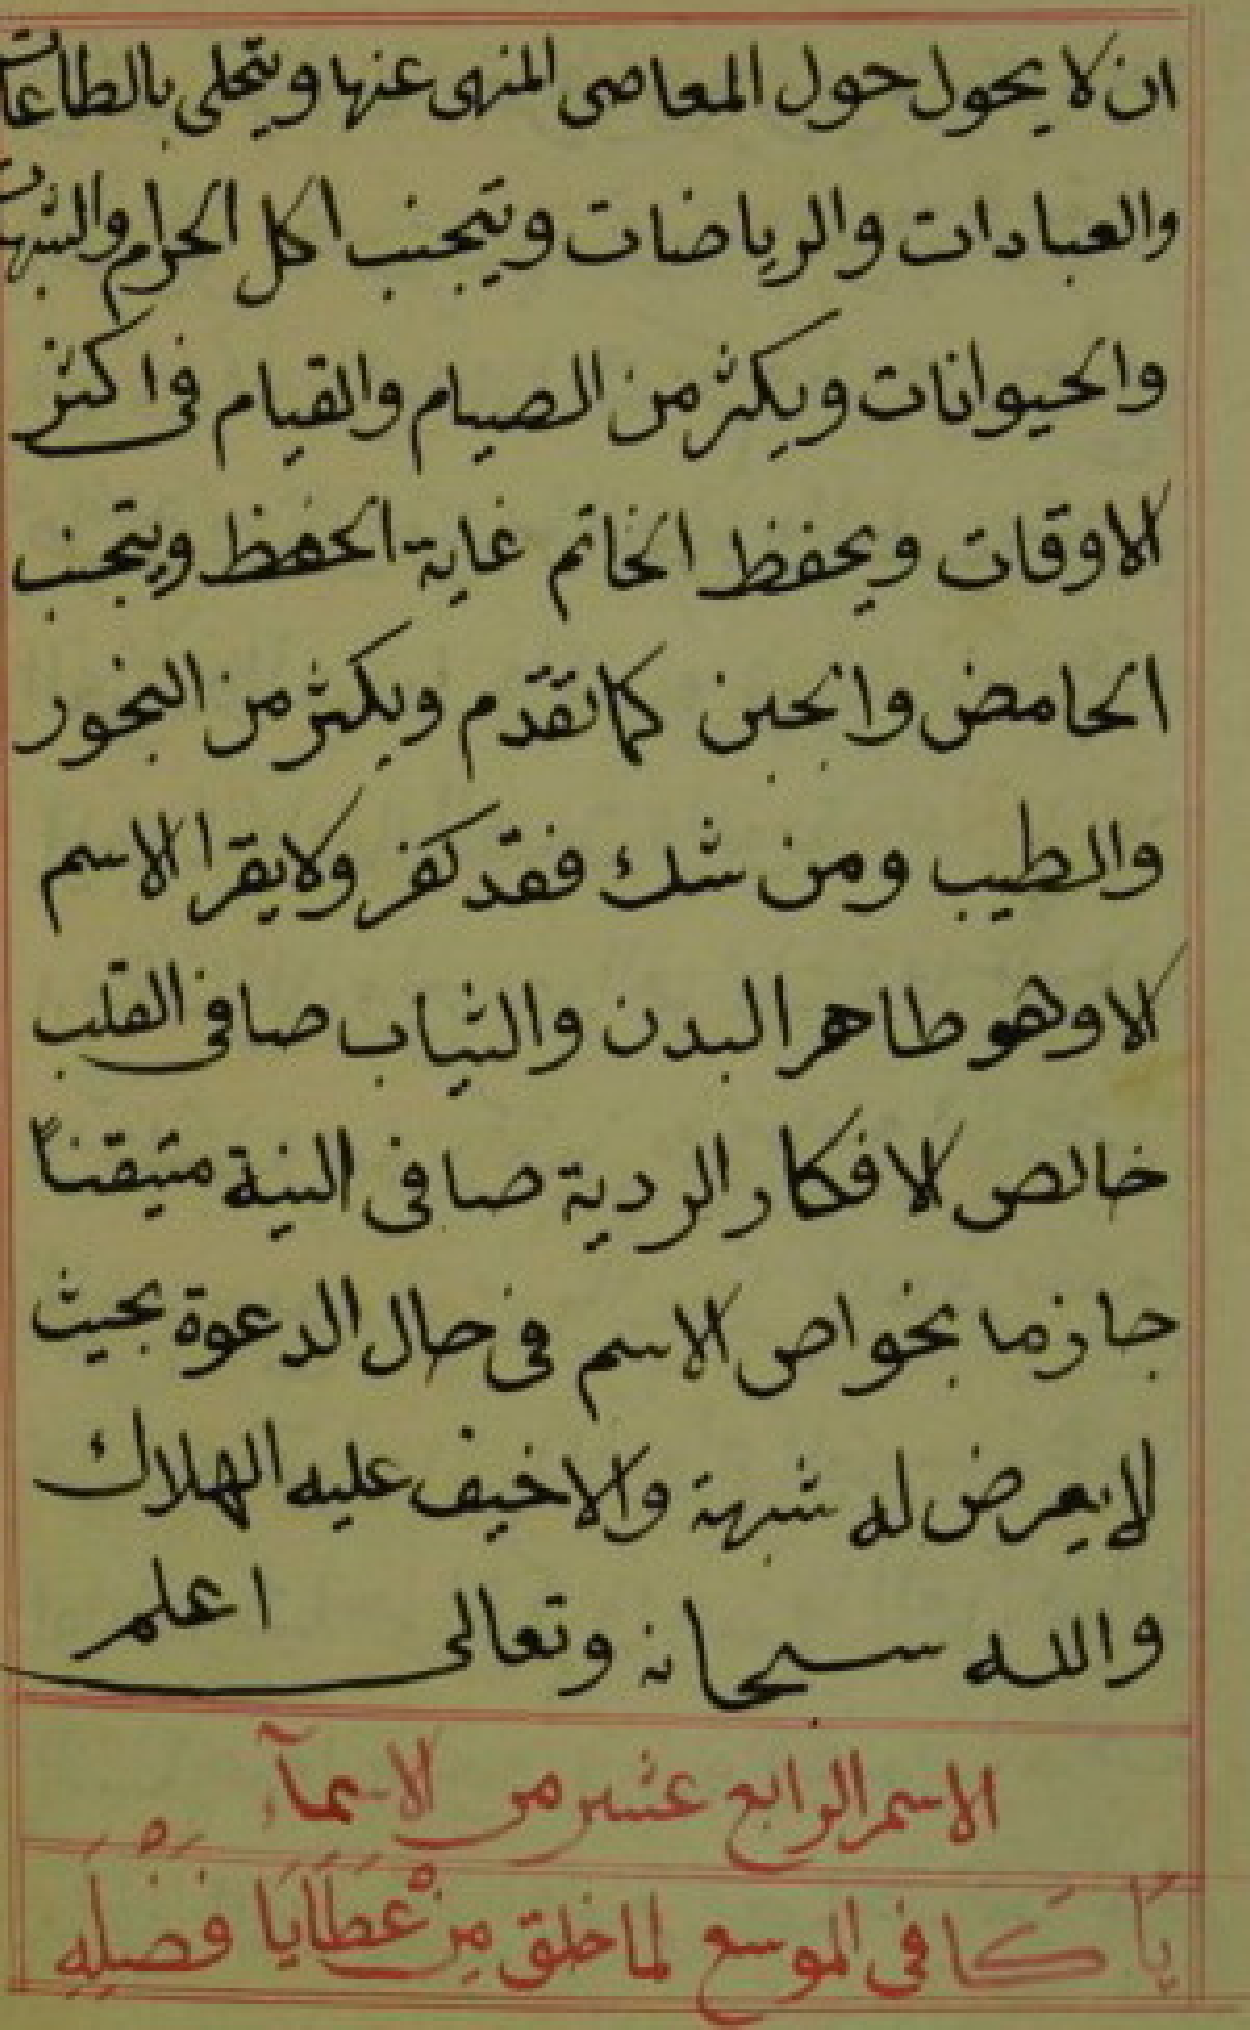 ان لا يحول حول المعاصى المنهى عنها ويتحلى بالطاعات
والعبادات والرياضات ويتجنب اكل الحرام والشبهات
والحيوانات ويكثر من الصيام والقيام فى اكثر
الاوقات ويحفظ الخاتم غاية الحفظ ويتجنب
الحامض والجبن كما تقدم ويكثر من البخور
والطيب ومن شك فقد كفر ولا يقرا الاسم
الا وهو طاهر البدن والثياب صافى القلب
خالص الافكار الردية صافى النية متيقناً
جازما بخواص الاسم فى حال الدعوة بحيث
لا يعرض له شبهة والا خيف عليه الهلاك
والله سبحانه وتعالى اعلم
الاسم الرابع عشر من الاسمآء
يَا كَافى الموسع لما خلق مِنْ عَطَايَا فَضْلِهِ